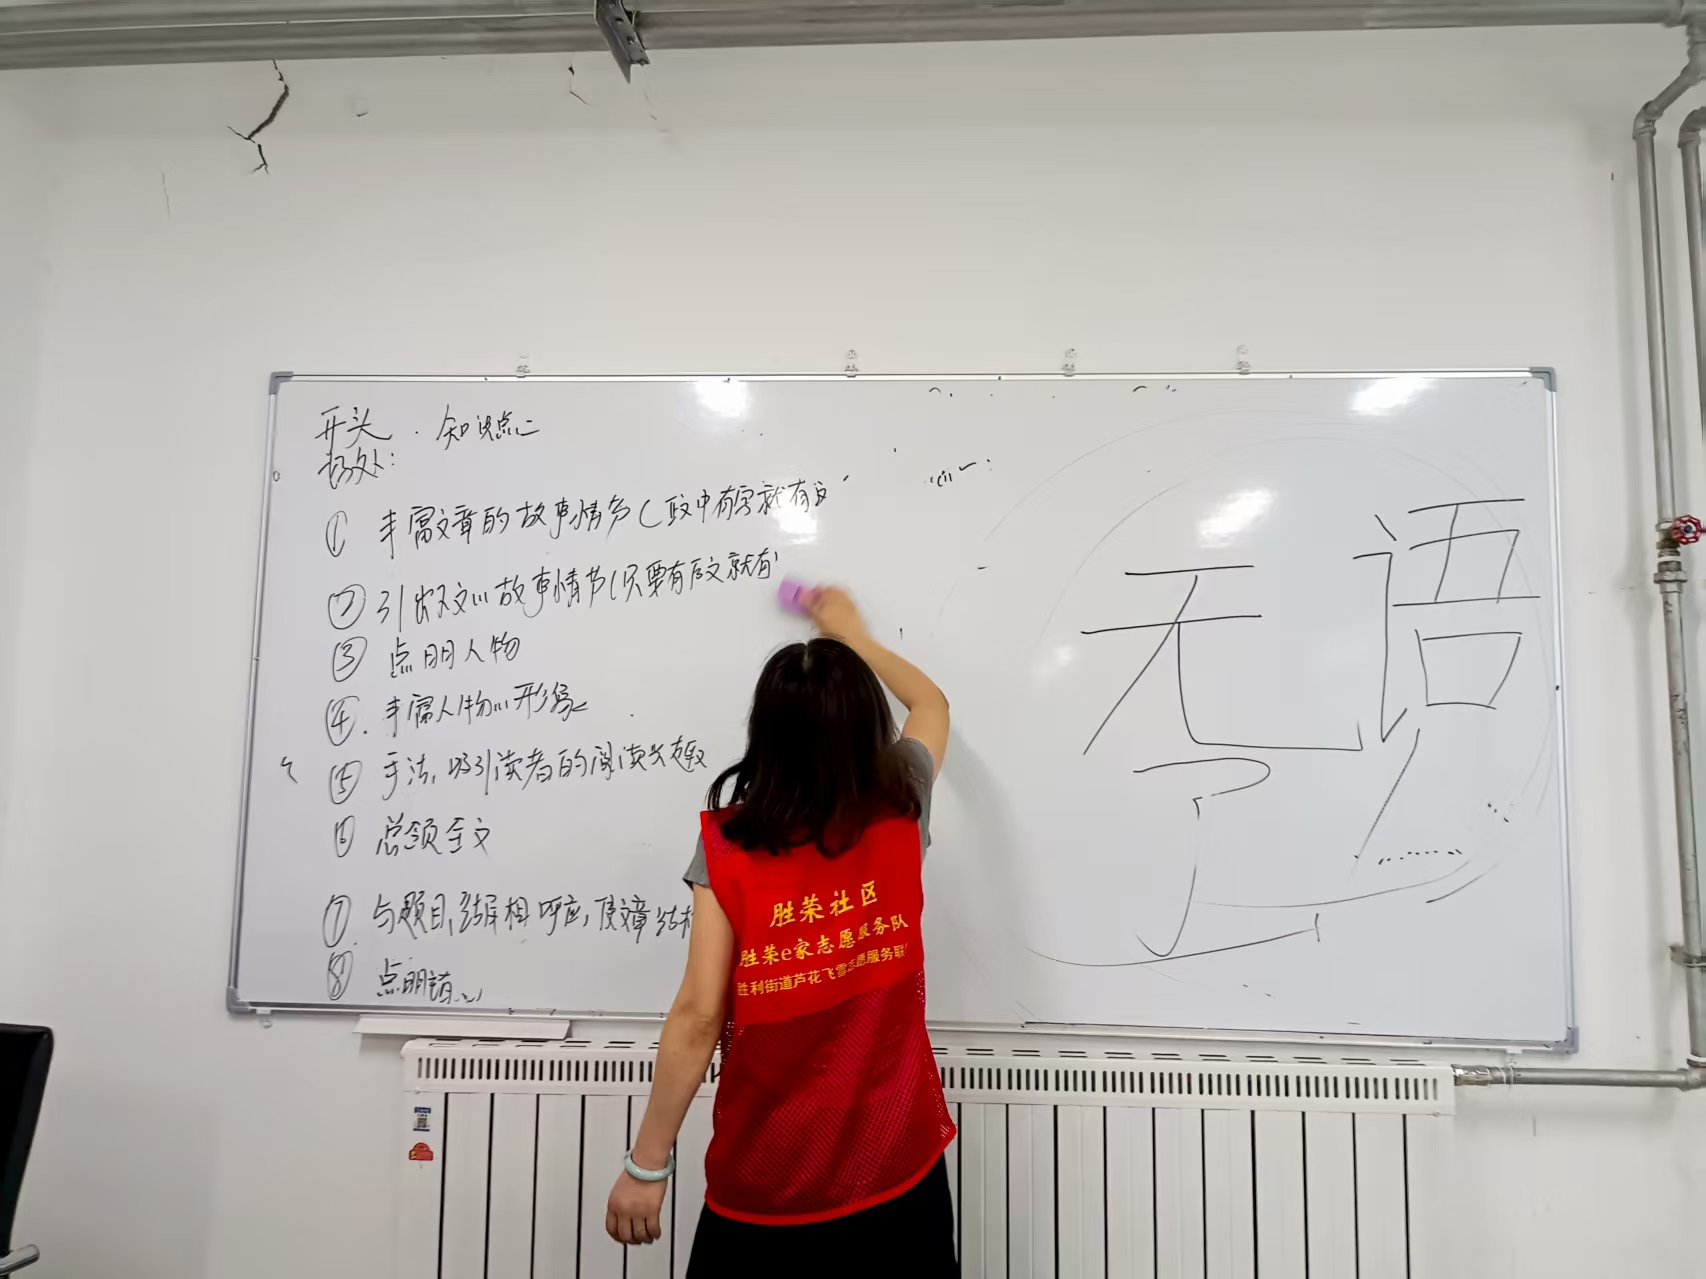 开头 . 知识点二
好处：
① 丰富文章的故事情节（段中有写就有这
② 引出下文的故事情节（只要有后文就有
③ 点明人物
④. 丰富人物的形象
⑤ 手法，吸引读者的阅读兴趣
⑥ 总领全文
⑦ 与题目，结尾相呼应，使文章结构
⑧ 点明
无语
了
胜荣社区
胜荣e家志愿服务队
胜利街道芦花飞雪志愿服务联